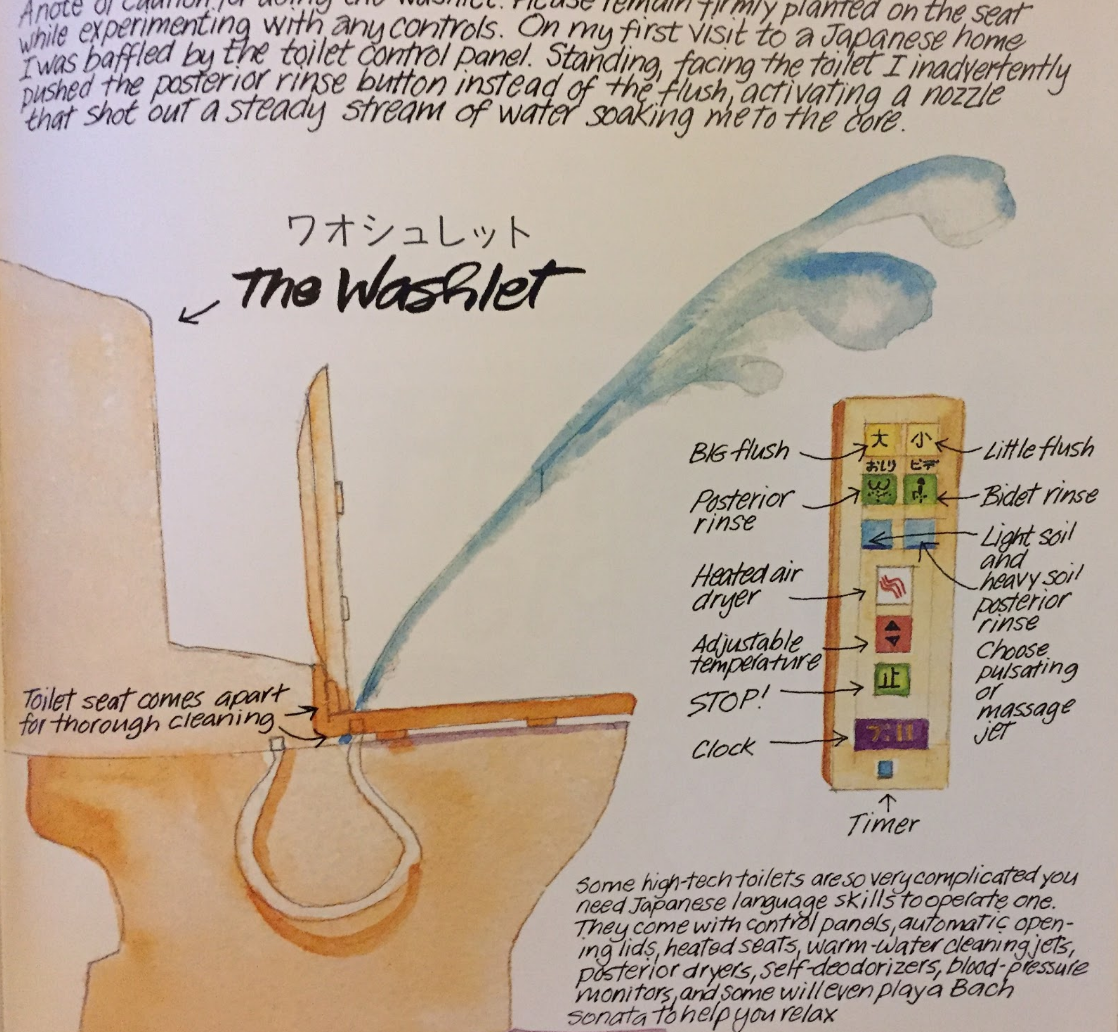 A note of caution for using the washlet. Please remain firmly planted on the seat
while experimenting with any controls. On my first visit to a Japanese home
I was baffled by the toilet control panel. Standing, facing the toilet I inadvertently
pushed the posterior rinse button instead of the flush, activating a nozzle
that shot out a steady stream of water soaking me to the core.
ワオシュレット
The Washlet
BIG flush
大 小
Little flush
おしり ビデ
Posterior
rinse
Bidet rinse
Light soil
and
heavy soil
posterior
rinse
Choose
pulsating
or
massage
jet
Heated air
dryer
Adjustable
temperature
STOP!
止
Clock
7:11
Timer
Toilet seat comes apart
for thorough cleaning
Some high-tech toilets are so very complicated you
need Japanese language skills to operate one.
They come with control panels, automatic open-
ing lids, heated seats, warm-water cleaning jets,
posterior dryers, self-deodorizers, blood-pressure
monitors, and some will even play a Bach
sonata to help you relax